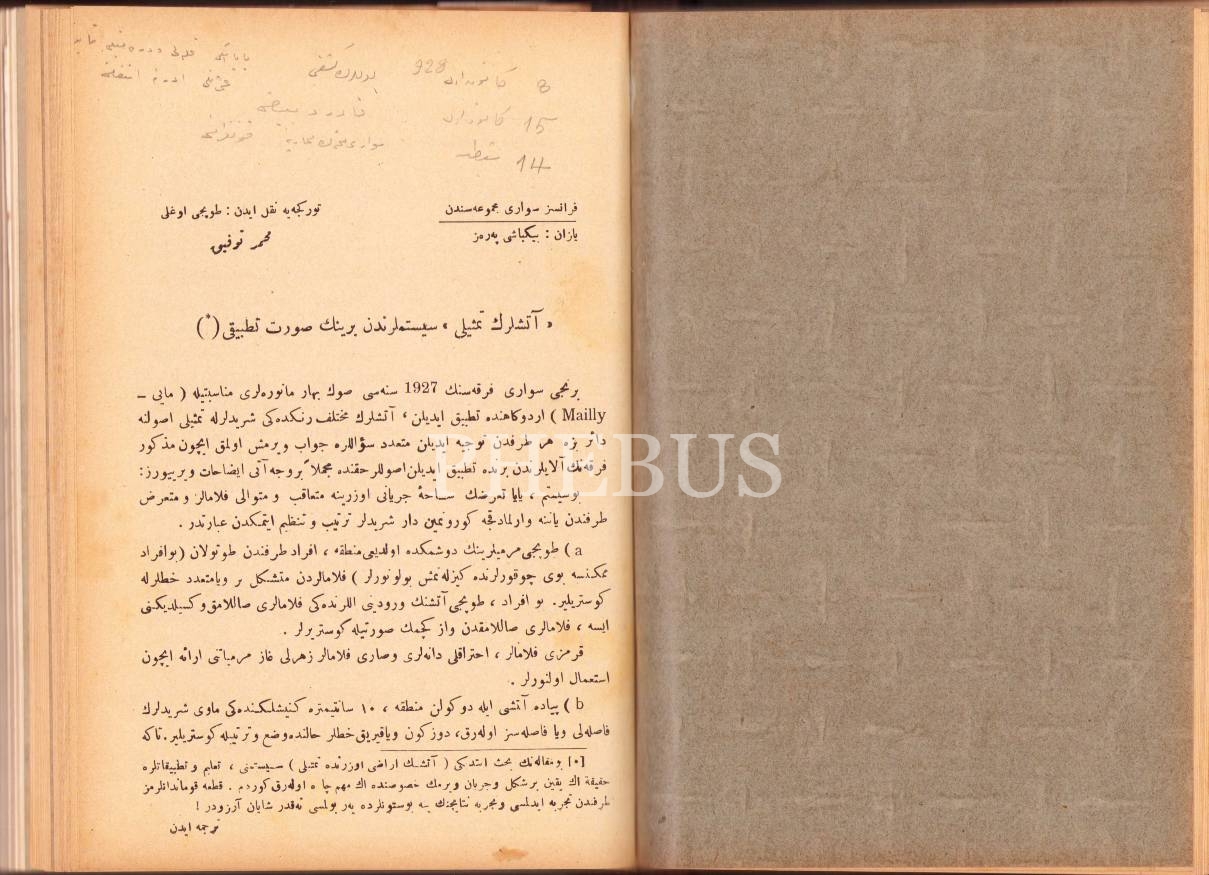 928
8 كانون اول
15 كانون اول
14 شباط
فرانسز سواری مجموعه‌سندن
یازان : بیكباشی په‌ره‌ز
تورکجه‌یه نقل ایدن : طوپجی اوغلی
محمد توفیق
« آتشلرك تمثیلی » سیستملرندن برینك صورت تطبیقی (*)
برنجی سواری فرقه‌سنك 1927 سنه‌سی صوك بهار مانوره‌لری مناسبتیله ( مایی ـ
Mailly ) اردوكاهنده تطبیق ایدیلن ، آتشلرك مختلف رنكده‌كی شریدلرله تمثیلی اصولنه
دائر بزه هر طرفدن توجیه ایدیلن متعدد سؤاللره جواب ویرمش اولمق ایچون مذكور
فرقه‌نك آلایلرندن برنده تطبیق ایدیلن اصوللر حقنده مجملاً بروجه آتی ایضاحات ویرییورز :
بوسیستم ، یایا تعرضك ساحهٔ جریانی اوزرینه متعاقب و متوالی فلامالر و متعرض
طرفندن یاننه وارلمادقجه كورونمین دار شریدلر ترتیب و تنظیم ایتمكدن عبارتدر .
a ) طوپجی مرمیلرینك دوشمكده اولدیغی منطقه ، افراد طرفندن طوتولان ( بوافراد
ممكنسه بوی چوقورلرنده كیزله‌نمش بولونورلر ) فلامالردن متشكل بر ویامتعدد خطلرله
كوستریلیر. بو افراد ، طوپجی آتشنك ورودینی اللرنده‌كی فلامالری صاللامق وكسیلدیكنی
ایسه ، فلامالری صاللامقدن واز كچمك صورتیله كوستریرلر .
قرمزی فلامالر ، احتراقلی دانه‌لری وصاری فلامالر زهرلی غاز مرمیاتنی ارائه ایچون
استعمال اولنورلر .
b ) پیاده آتشی ایله دوكولن منطقه ، ١٠ سانتیمتره كنیشلكنده‌كی ماوی شریدلرك
فاصله‌لی ویا فاصله‌سز اوله‌رق، دوزكون ویاقیریق خطلر حالنده وضع و ترتیبله كوستریلیر. تاكه
[٠] بومقاله‌نك بحث ایتدیكی ( آتشك اراضی اوزرنده تمثیلی ) سیستمنی ، تعلیم و تطبیقاتلره
حقیقته اك یقین برشكل وجریان ویرمك خصوصنده اك مهم چاره اوله‌رق كوردم . قطعه قوماندانلرمز
طرفندن تجربه ایدلمسی وتجربه نتایجنك ینه بوستونلرده یر بولمسی نه‌قدر شایان آرزودر !
ترجمه ایدن
PHEBUS